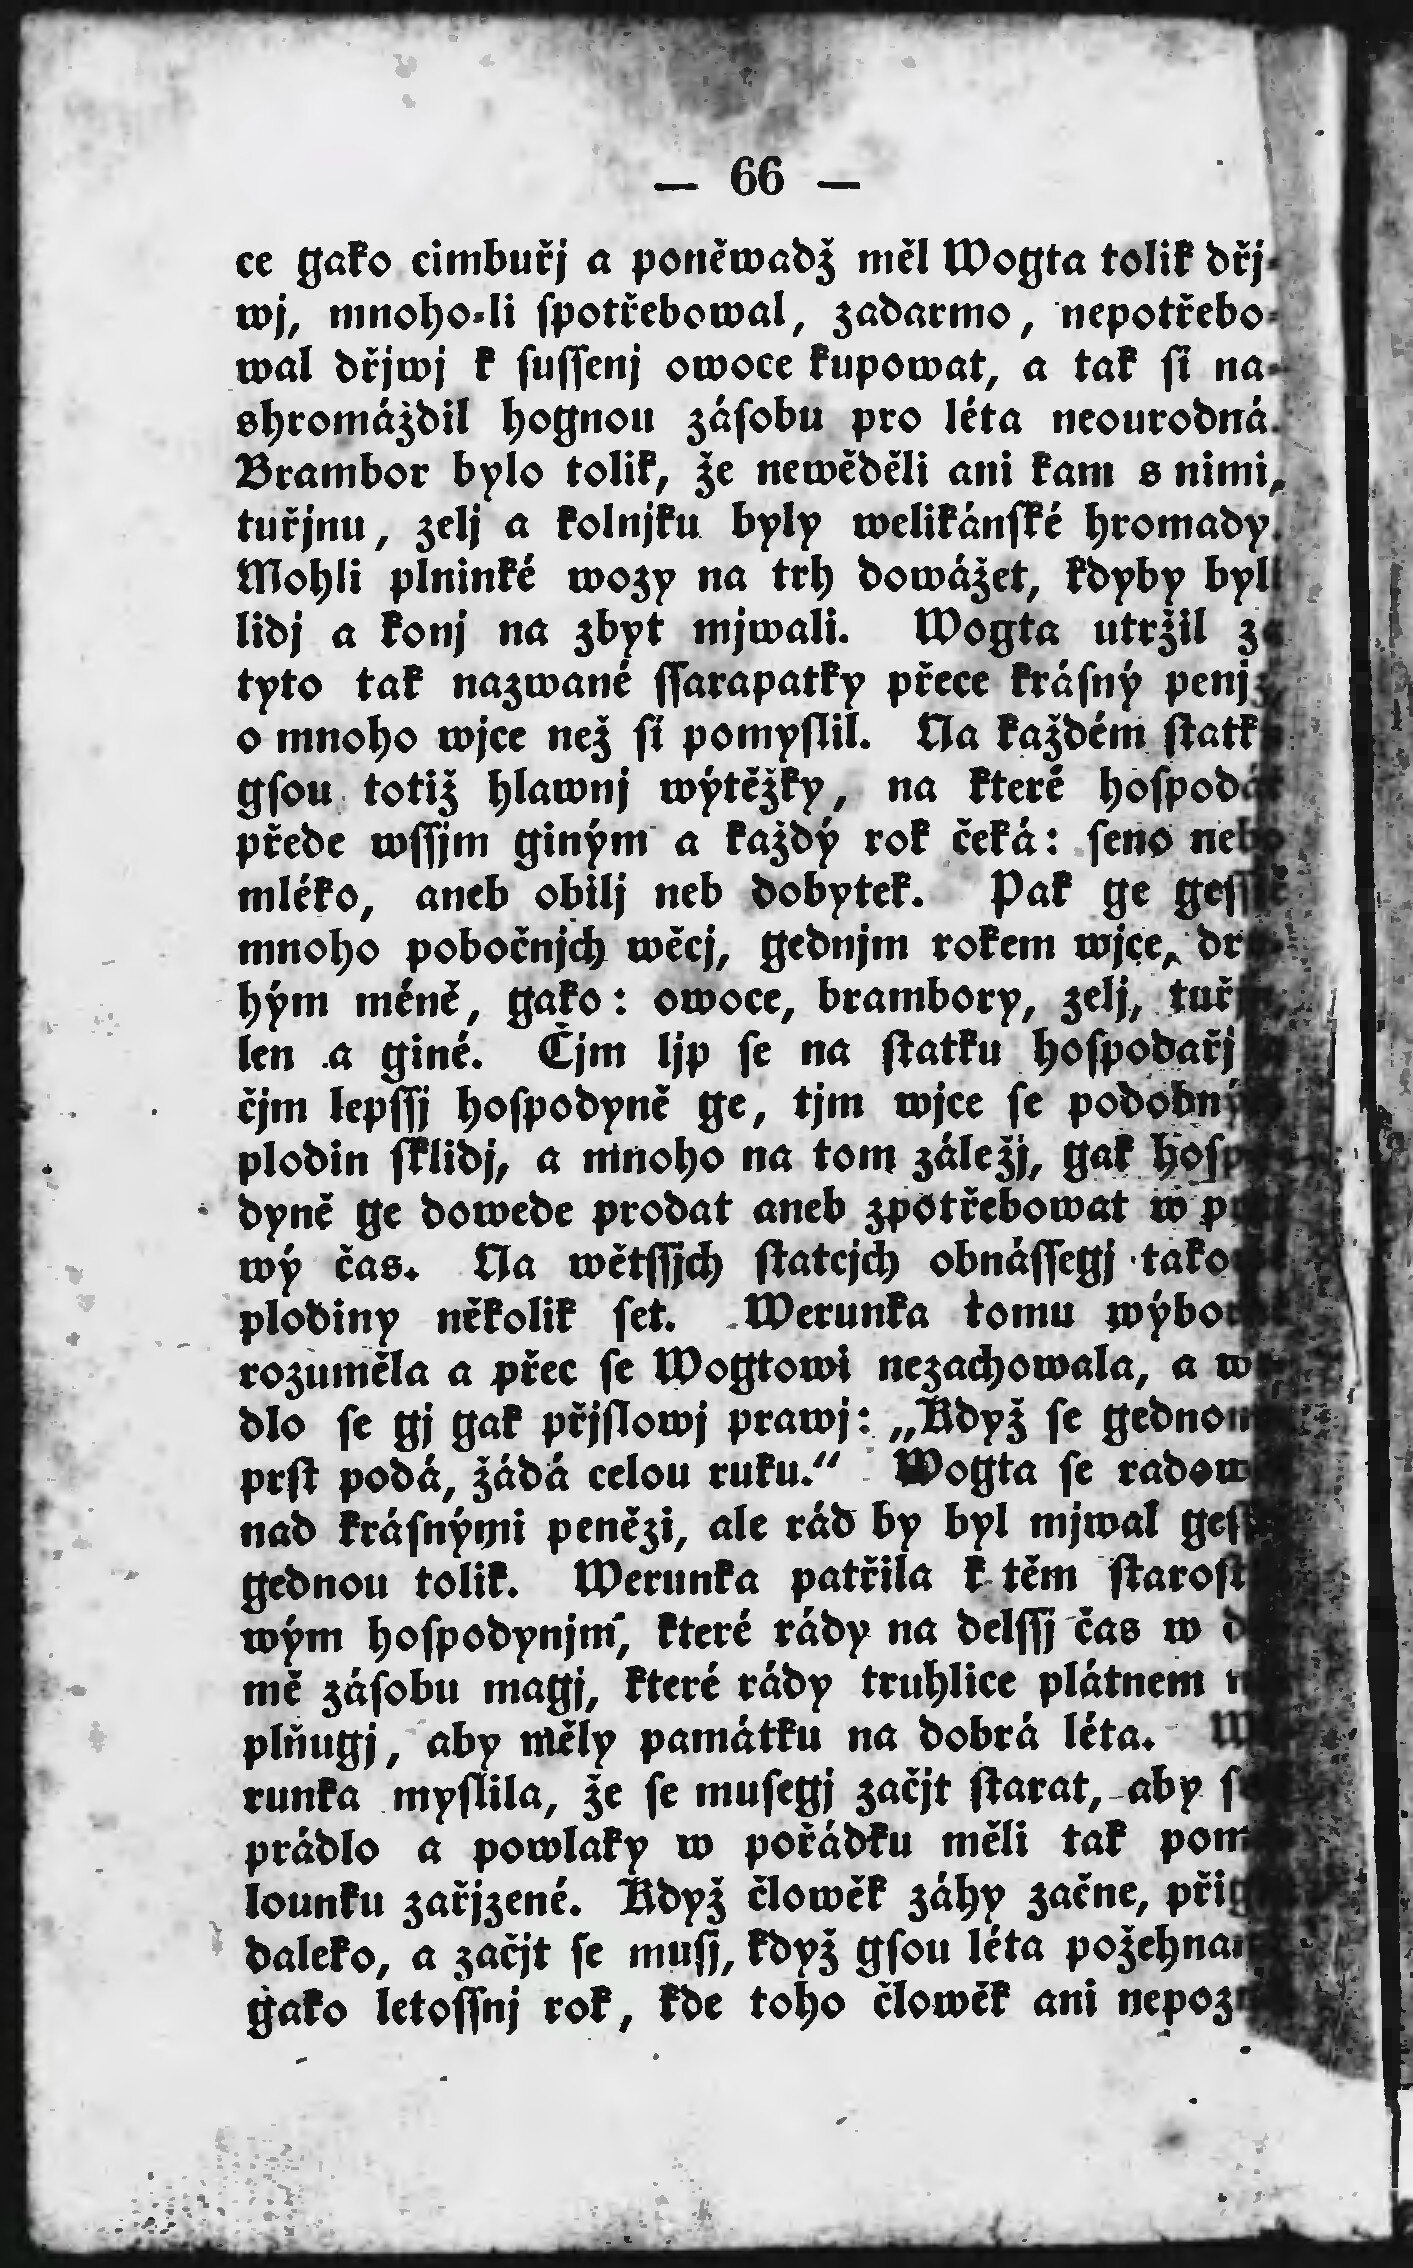 — 66 —
ce gako cimbuřj a poněwadž měl Wogta tolik dřj-
wj, mnoho-li spotřebowal, zadarmo, nepotřebo-
wal dřjwj k sussenj owoce kupowat, a tak si na-
shromáždil hognou zásobu pro léta neourodná.
Brambor bylo tolik, že newěděli ani kam s nimi,
tuřjnu, zelj a kolnjku byly welikánské hromady.
Mohli plninké wozy na trh dowážet, kdyby byli
lidj a konj na zbyt mjwali. Wogta utržil za
tyto tak nazwané ssarapatky přece krásný penjz,
o mnoho wjce než si pomyslil. Na každém statku
gsou totiž hlawnj wýtěžky, na které hospodář
přede wssjm giným a každý rok čeká: seno nebo
mléko, aneb obilj neb dobytek. Pak ge gesstě
mnoho pobočnjch wěcj, gednjm rokem wjce, dru-
hým méně, gako: owoce, brambory, zelj,
len a giné. Čjm ljp se na statku hospodařj
čjm lepssj hospodyně ge, tjm wjce se
plodin sklidj, a mnoho na tom záležj, gak hospo-
dyně ge dowede prodat aneb zpotřebowat w
wý čas. Na wětssjch statcjch obnássegj
plodiny několik set. Werunka tomu
rozuměla a přec se Wogtowi nezachowala, a
dlo se gj gak přjslowj prawj: „Když se gednou
prst podá, žádá celou ruku.“ Wogta se
nad krásnými penězi, ale rád by byl mjwal
gednou tolik. Werunka patřila k těm
wým hospodynjm, které rády na delssj čas w
mě zásobu magj, které rády truhlice plátnem
plňugj, aby měly památku na dobrá léta.
runka myslila, že se musegj začjt starat, aby
prádlo a powlaky w pořádku měli tak
lounku zařjzené. Když člowěk záhy začne,
daleko, a začjt se musj, když gsou léta
gako letossnj rok, kde toho člowěk ani